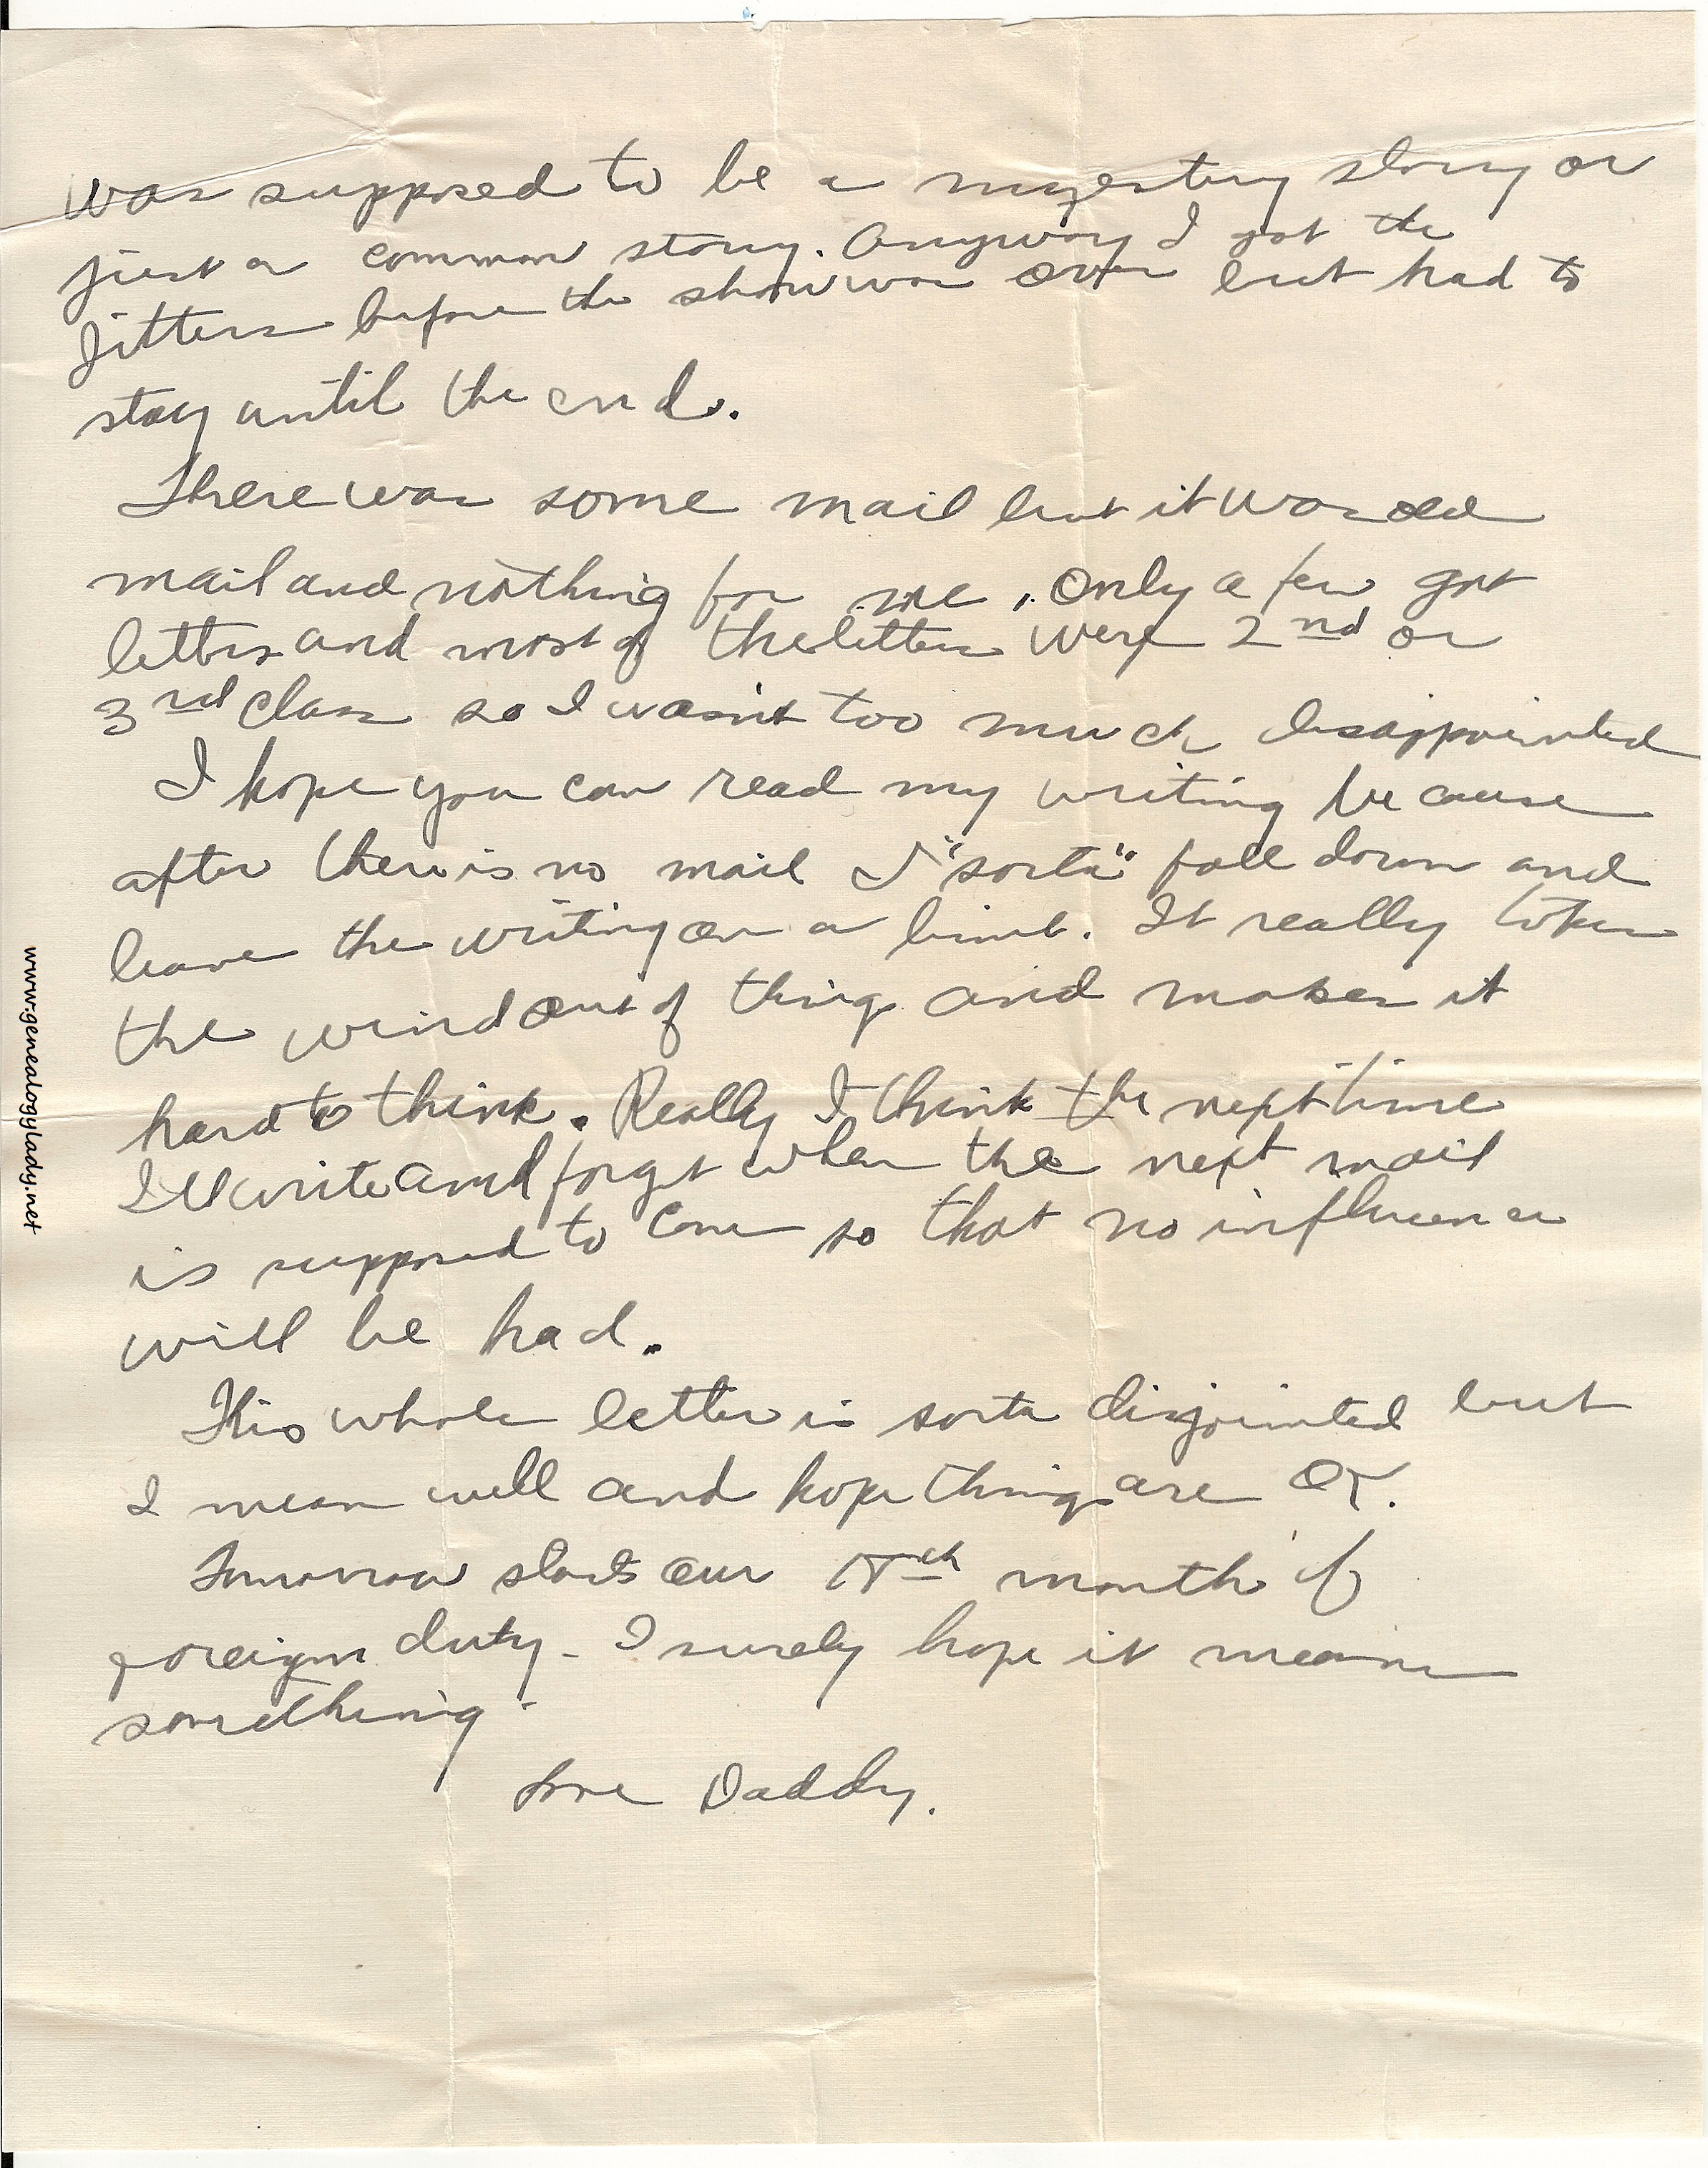 was supposed to be a mystery story or
just a common story. Anyway I got the
jitters before the show was over but had to
stay until the end.
There was some mail but it was old
mail and nothing for me. Only a few got
letters and most of the letters were 2nd or
3rd class so I wasn't too much disappointed
I hope you can read my writing because
after there is no mail I "sorta" fall down and
leave the writing on a limb. It really takes
the wind out of things and makes it
hard to think. Really I think the next time
I'll write and forget when the next mail
is supposed to come so that no influence
will be had.
This whole letter is sorta disjointed but
I mean well and hope things are OK.
Tomorrow starts our month of
foreign duty - I surely hope it means
something.
Love Daddy.
www.genealogylady.net